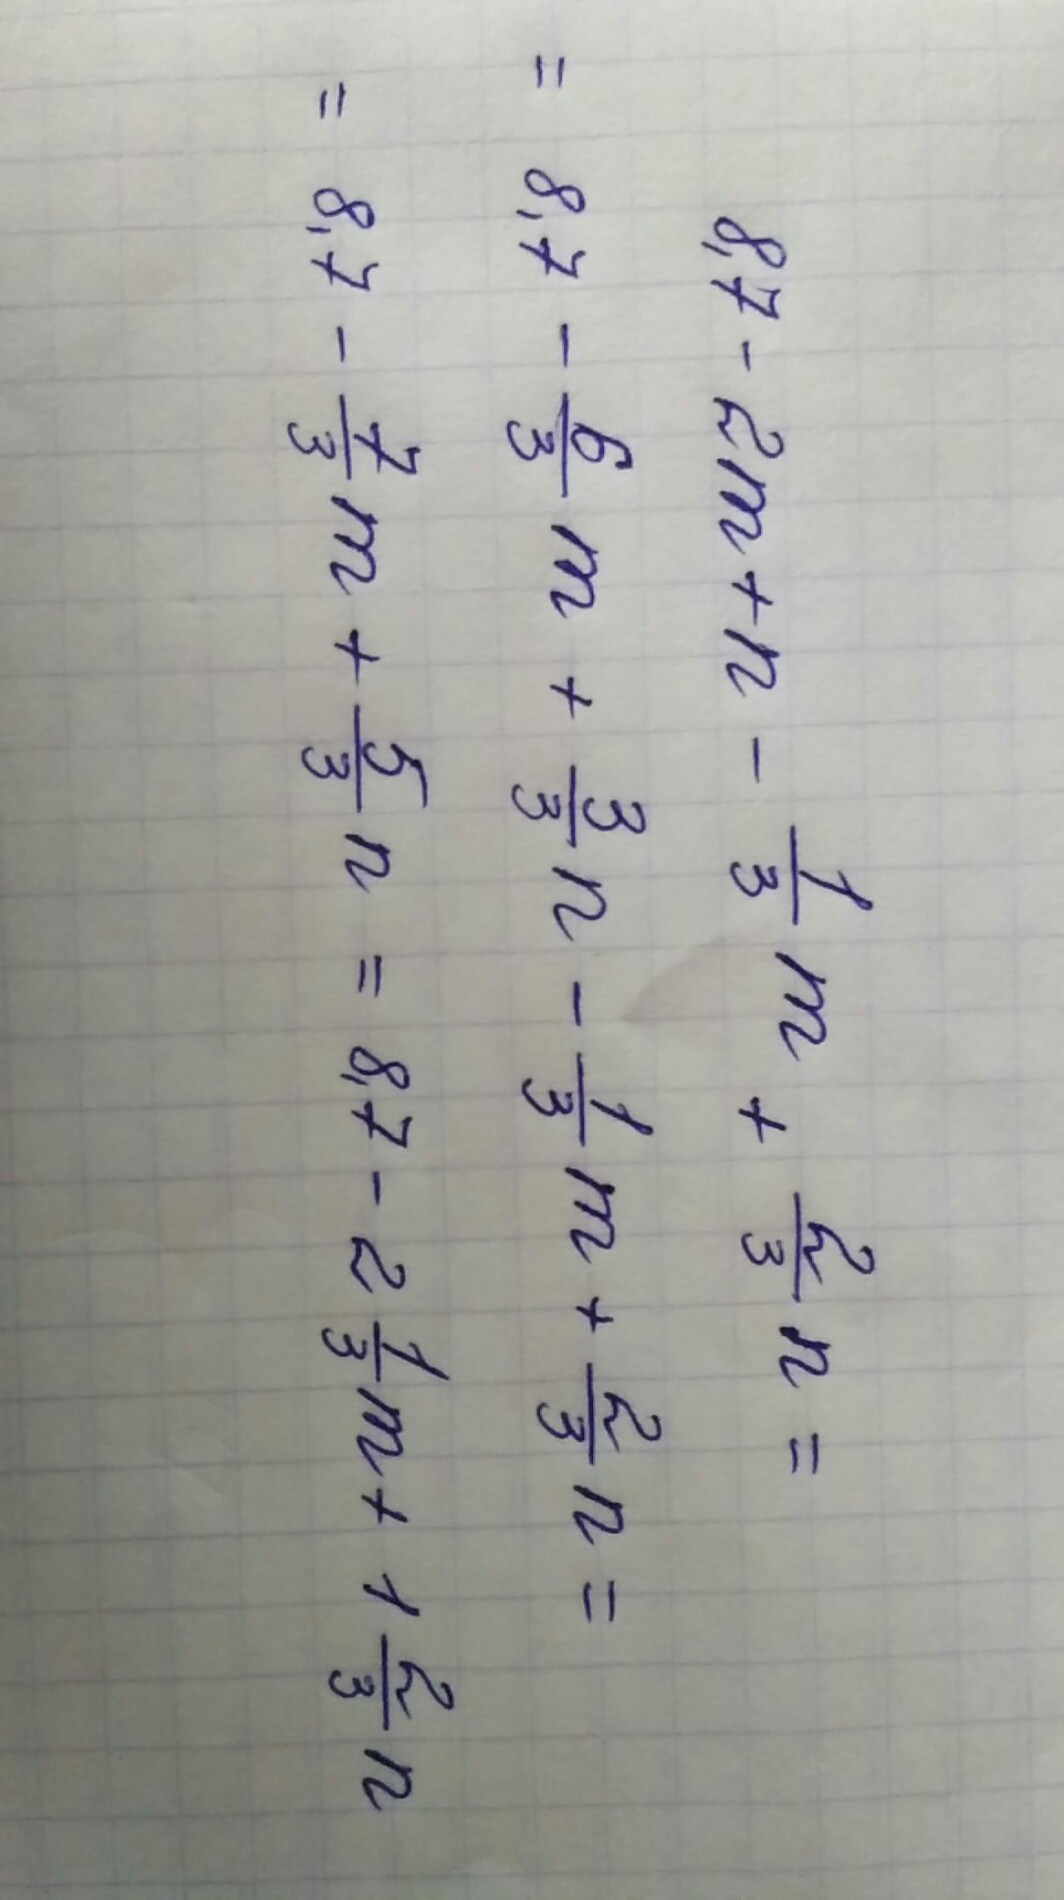 8,7 - 2m + n - 1/3 m + 2/3 n =
= 8,7 - 6/3 m + 3/3 n - 1/3 m + 2/3 n =
= 8,7 - 7/3 m + 5/3 n = 8,7 - 2 1/3 m + 1 2/3 n